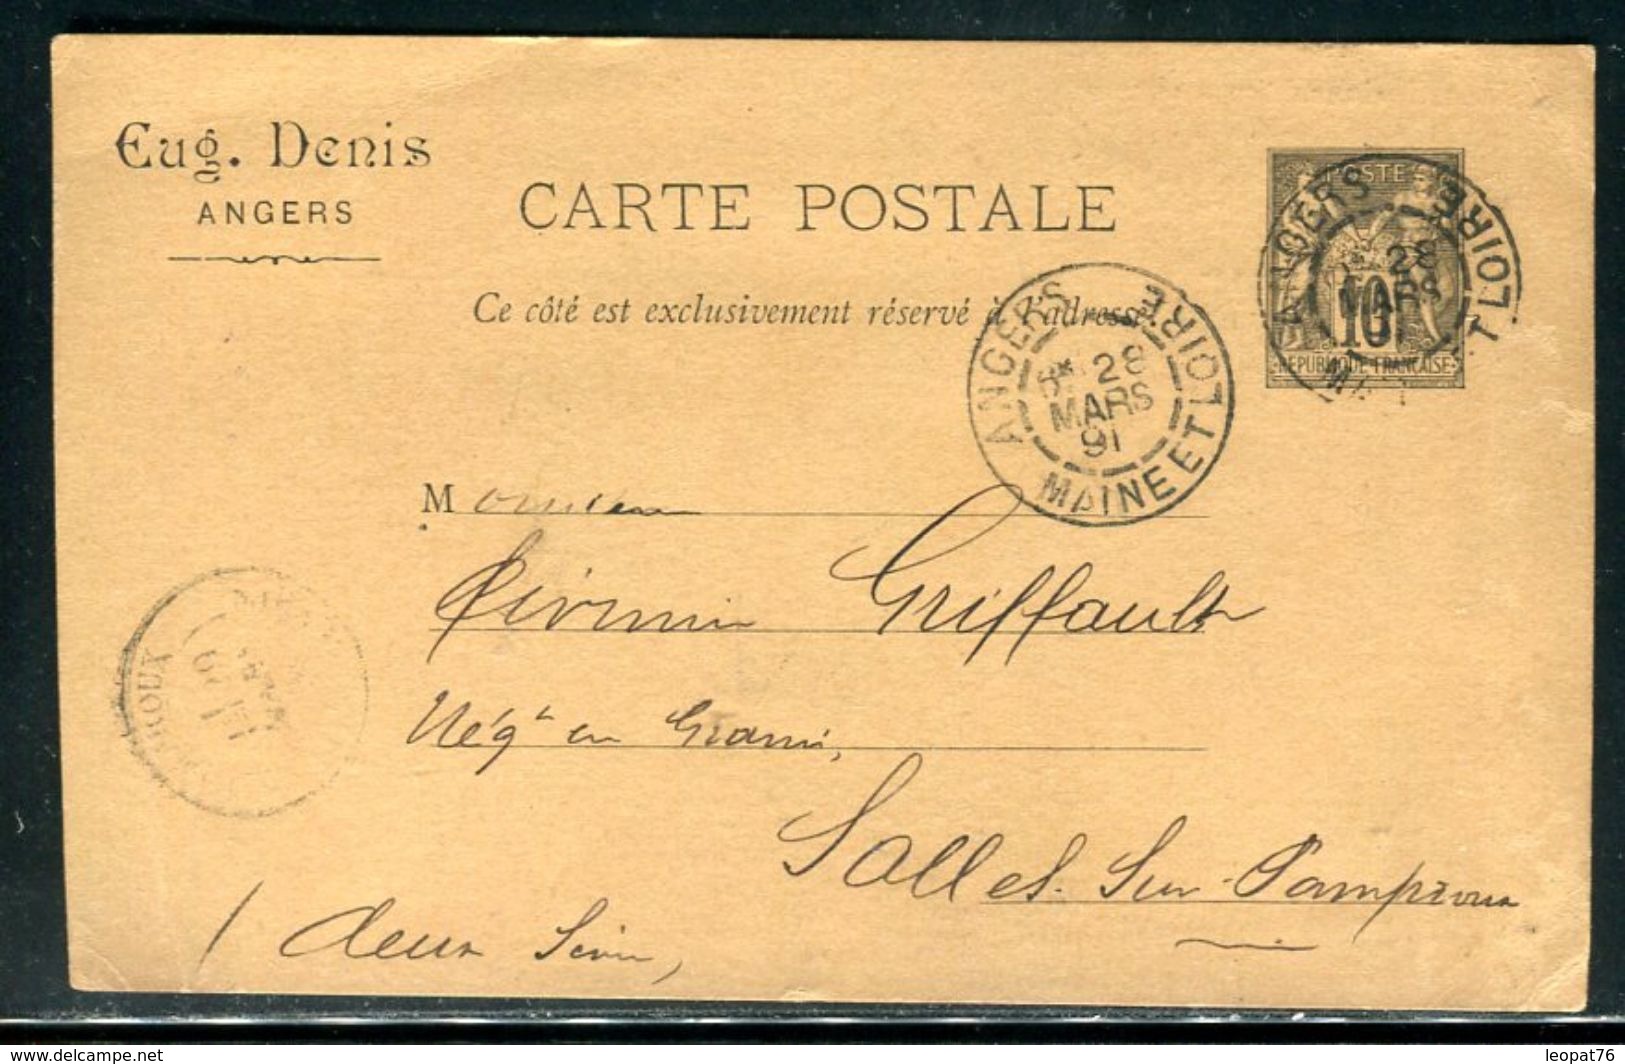 Eug. Denis
ANGERS
CARTE POSTALE
Ce côté est exclusivement réservé à l'adresse.
POSTES
10
RÉPUBLIQUE FRANÇAISE
ANGERS
28
MARS
MAINE ET LOIRE
ANGERS
28
MARS
91
MAINE ET LOIRE
Monsieur
Firmin Griffault
Négt en Grains,
Salles-Sur-Pamproux
/ deux Sèvres,
ROUX
delcampe.net
leopat76